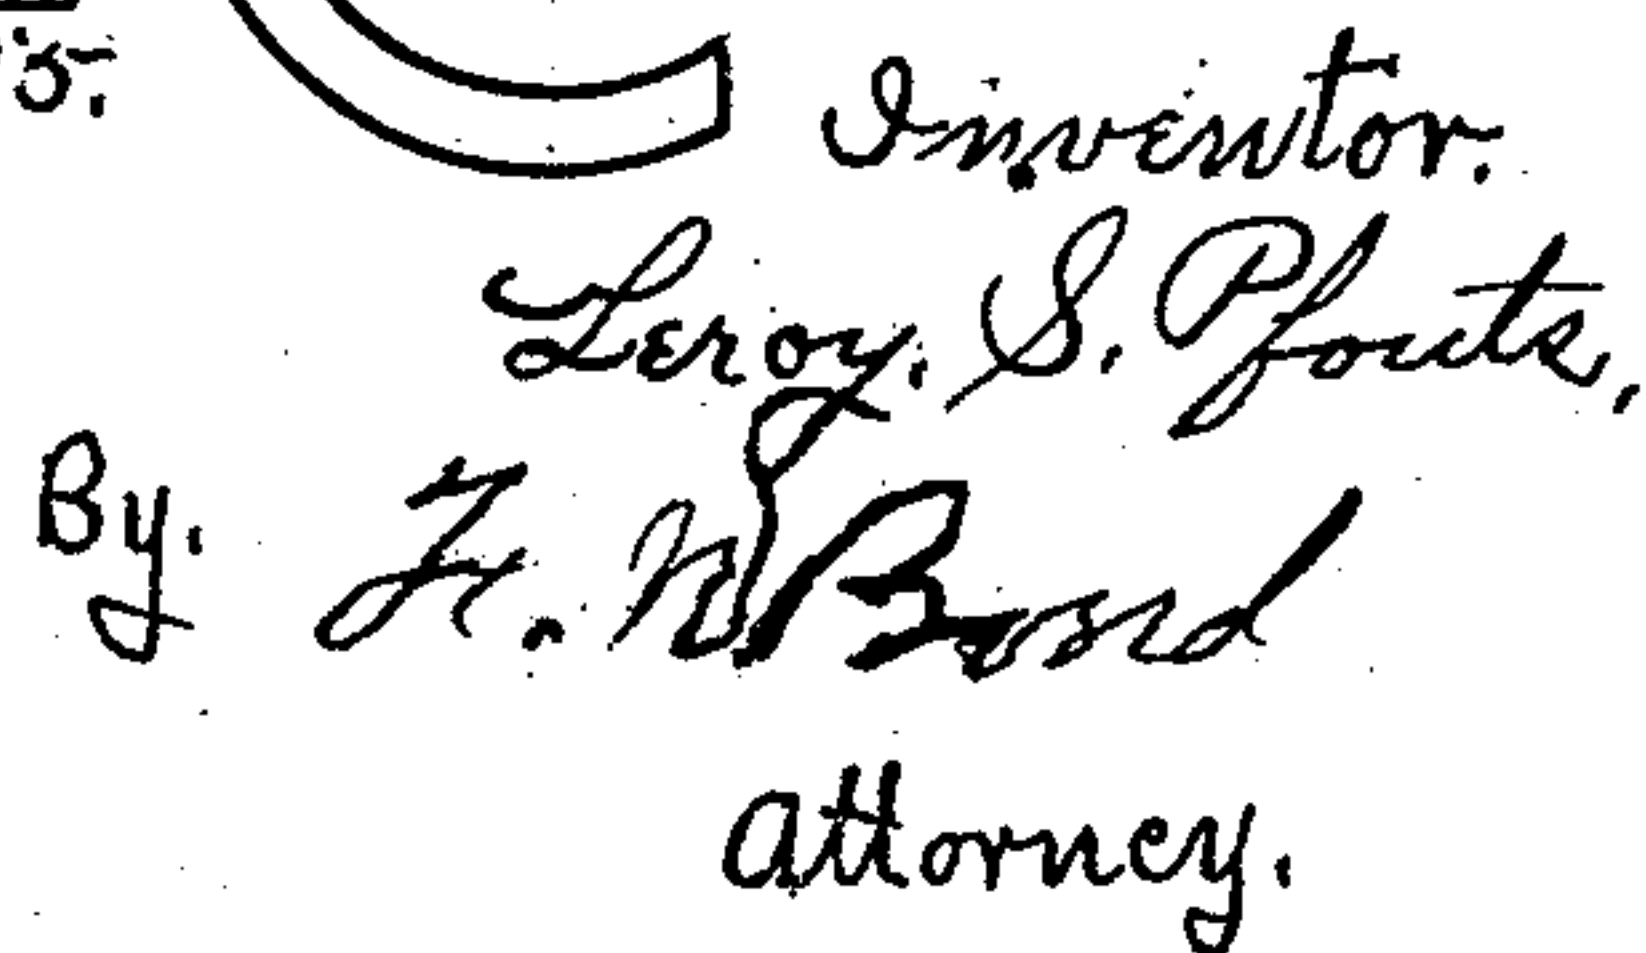 5.
Inventor.
Leroy. S. Pfouts,
By. F. W. Bond
Attorney.